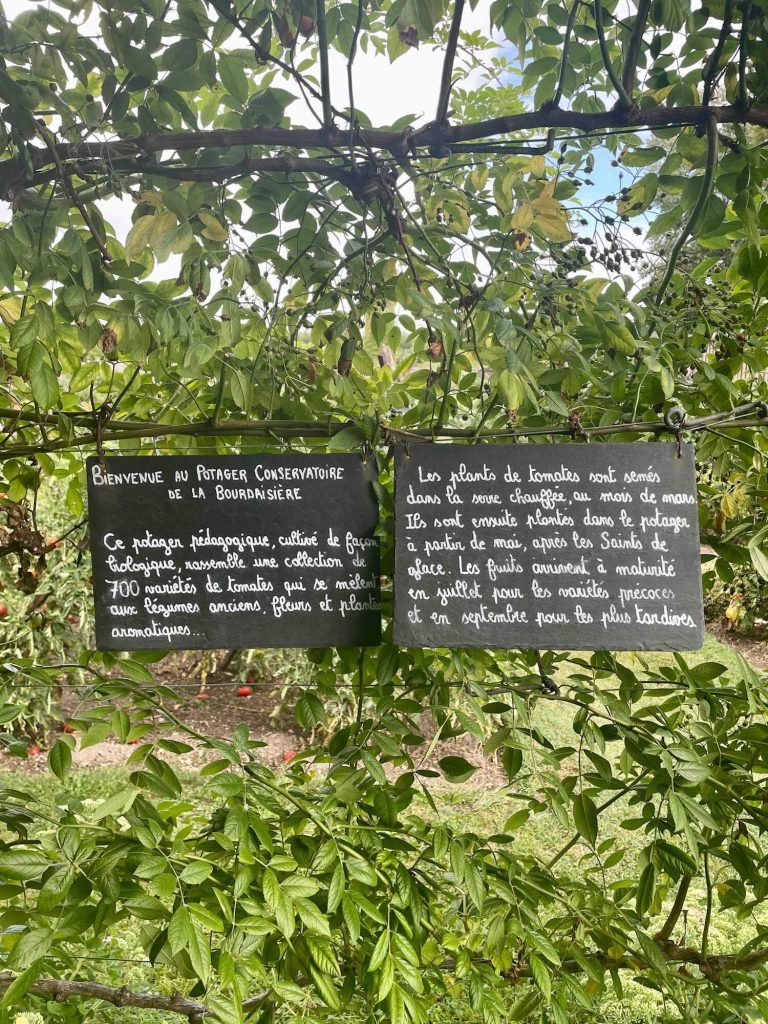 BIENVENUE AU POTAGER CONSERVATOIRE
DE LA BOURDAISIÈRE
Ce potager pédagogique, cultivé de façon
biologique, rassemble une collection de
700 variétés de tomates qui se mêlent
aux légumes anciens, fleurs et plantes
aromatiques...
Les plants de tomates sont semés
dans la serre chauffée, au mois de mars.
Ils sont ensuite plantés dans le potager
à partir de mai, après les Saints de
glace. Les fruits arrivent à maturité
en juillet pour les variétés précoces
et en septembre pour les plus tardives.